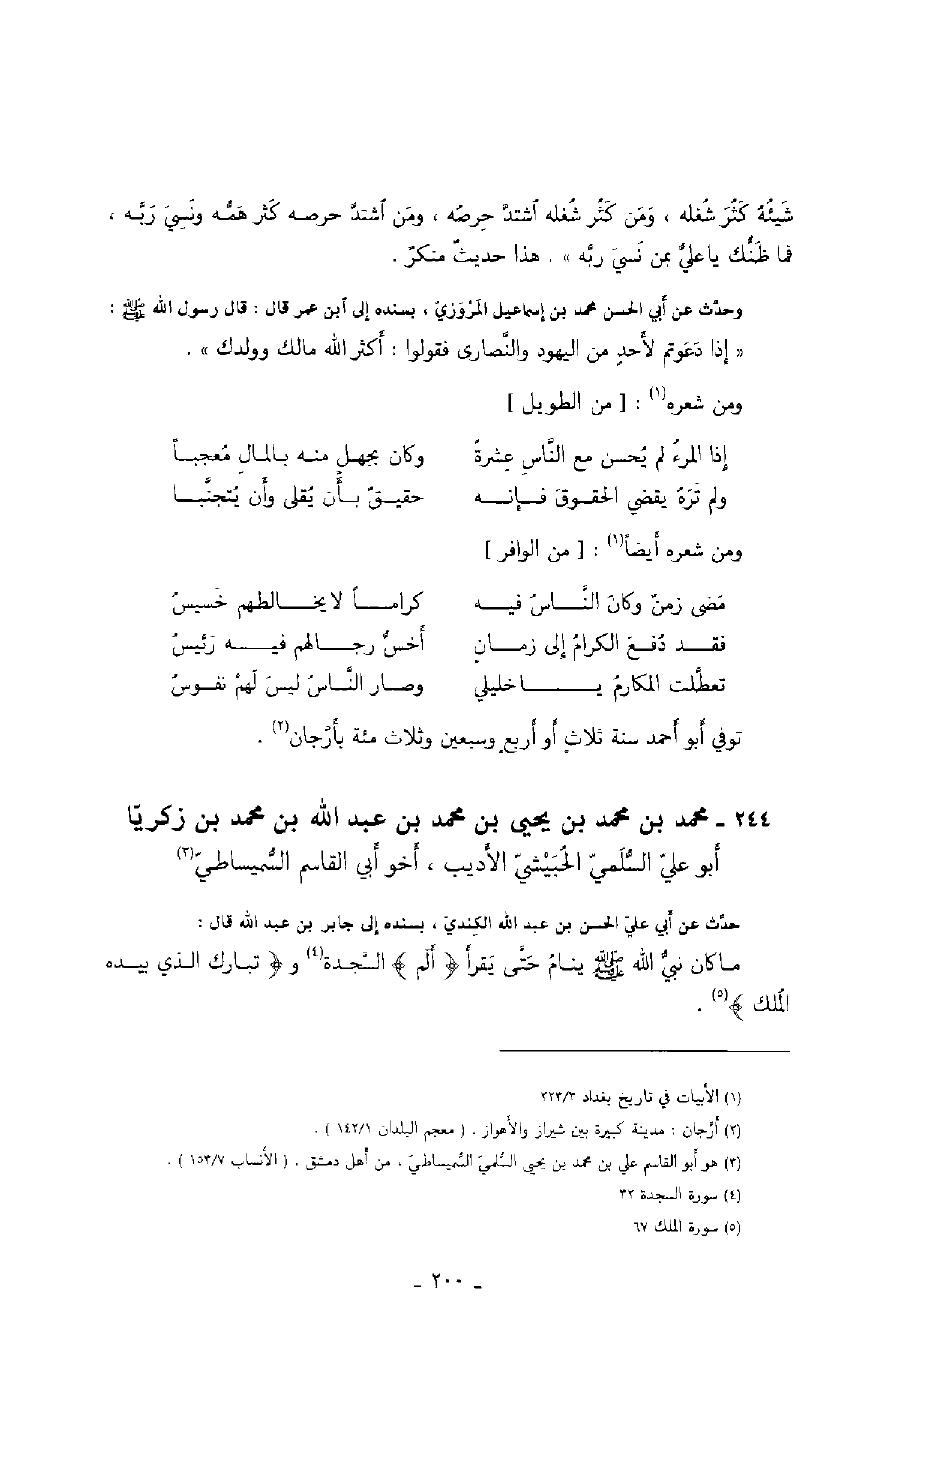 شَيْئُهُ كَثُرَ شُغله ، وَمَن كَثُر شُغله اَشتدَّ حِرصُه ، ومَن اَشتدَّ حرصه كَثر هَمُّه ونَسِيَ رَبَّه ،
فما ظَنُّك ياعليُّ بمن نَسِيَ ربَّه » . هذا حديثٌ منكرٌ .
وحدَّث عن أبي الحسن محمد بن إسماعيل المَرْوَزيّ ، بسنده إلى اَبن عمر قال : قال رسول الله ﷺ :
« إذا دَعَوتم لأحدٍ من اليهود والنَّصارى فقولوا : أكثر الله مالك وولدك » .
ومن شعره(١) : [ من الطويل ]
إذا المرءُ لم يُحسن مع النَّاسِ عِشرةً وكان بجهلٍ منه بالمالِ مُعجباً
ولم تَرَهُ يقضي الحقوقَ فإنه حقيقٌ بأن يُقلى وأن يُتجنَّبا
ومن شعره أيضاً(١) : [ من الوافر ]
مَضى زمنٌ وكانَ النَّاسُ فيه كراماً لا يخالطهم خَسيسُ
فقد دُفعَ الكرامُ إلى زمانٍ أخسُّ رجالهم فيه رَئيسُ
تعطَّلت المكارمُ ياخليلي وصار النَّاسُ ليسَ لَهمْ نفوسُ
توفي أبو أحمد سنة ثلاثٍ أو أربعٍ وسبعين وثلاث مئة بأرَّجان(٢) .
٢٤٤ ـ محمد بن محمد بن يحيى بن محمد بن عبد الله بن محمد بن زكريّا
أبو عليّ السُّلَميّ الحُبَيْشيّ الأديب ، أخو أبي القاسم السُّميساطيّ(٣)
حدَّث عن أبي عليّ الحسن بن عبد الله الكنديّ ، بسنده إلى جابر بن عبد الله قال :
ماكان نبيُّ الله ﷺ ينامُ حَتَّى يَقرأ ﴿ ألم ﴾ السَّجدة(٤) و ﴿ تبارك الذي بيده
المُلك ﴾(٥) .
(١) الأبيات في تاريخ بغداد ٢٢٣/٣
(٢) أرَّجان : مدينة كبيرة بين شيراز والأهواز . ( معجم البلدان ١٤٢/١ ) .
(٣) هو أبو القاسم علي بن محمد بن يحيى السُّلميّ السُّميساطيّ ، من أهل دمشق . ( الأنساب ١٥٣/٧ ) .
(٤) سورة السجدة ٣٢
(٥) سورة الملك ٦٧
ـ ٢٠٠ ـ